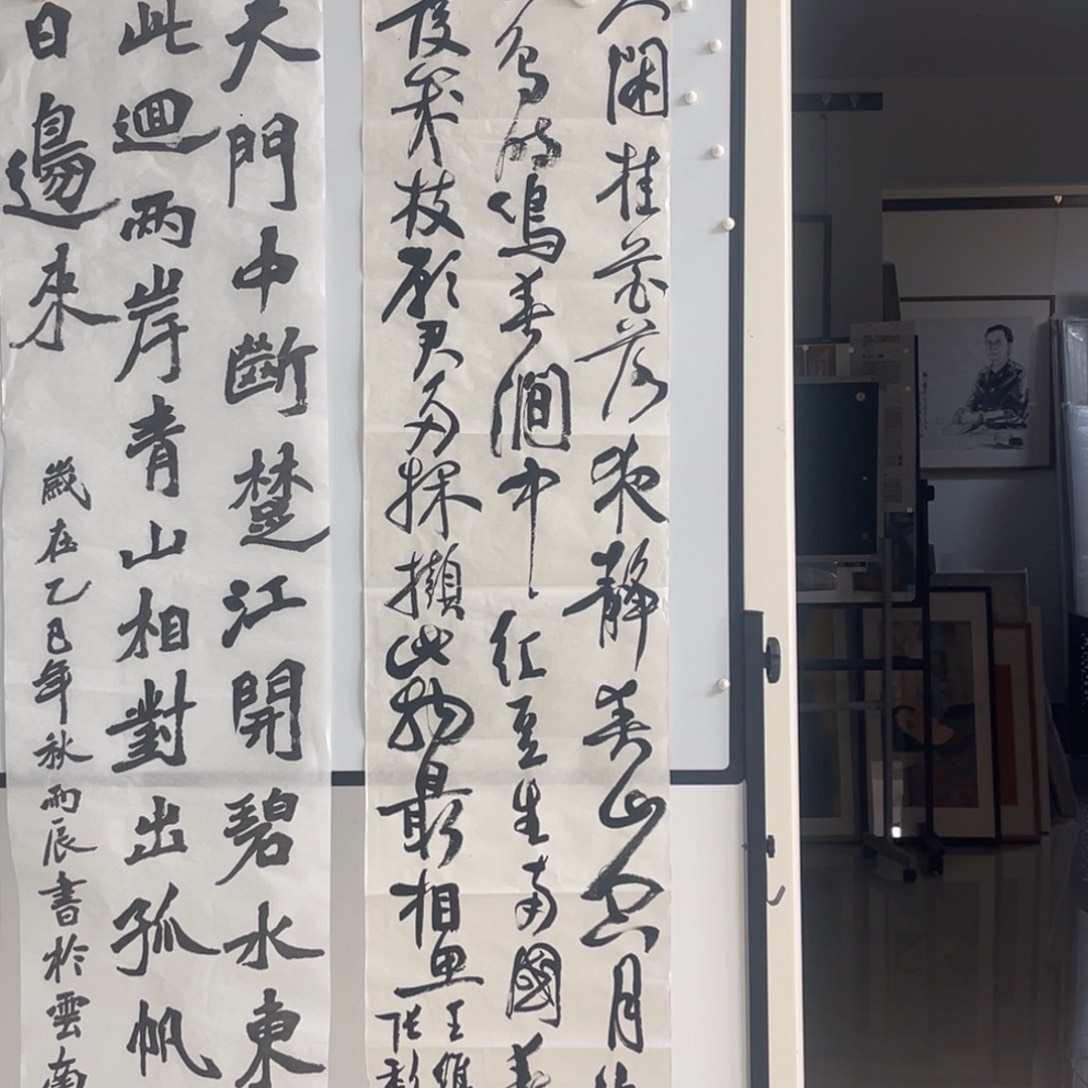 人閑桂花落夜靜春山空月
鳥時鳴春澗中紅豆生南國春
發幾枝願君多採擷此物最相思
王維
張
天門中斷楚江開碧水東
此迴两岸青山相對出孤帆
日邊來
歲在乙巳年秋雨辰書於雲南